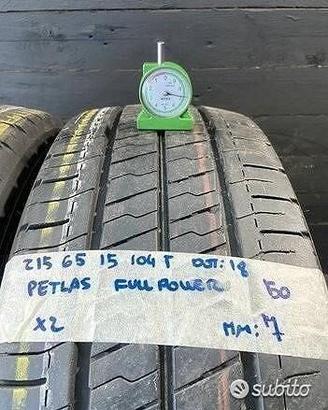 215 65 15 104 T DOT: 18
PETLAS FULL POWER 60
X2 MM: 7
subito